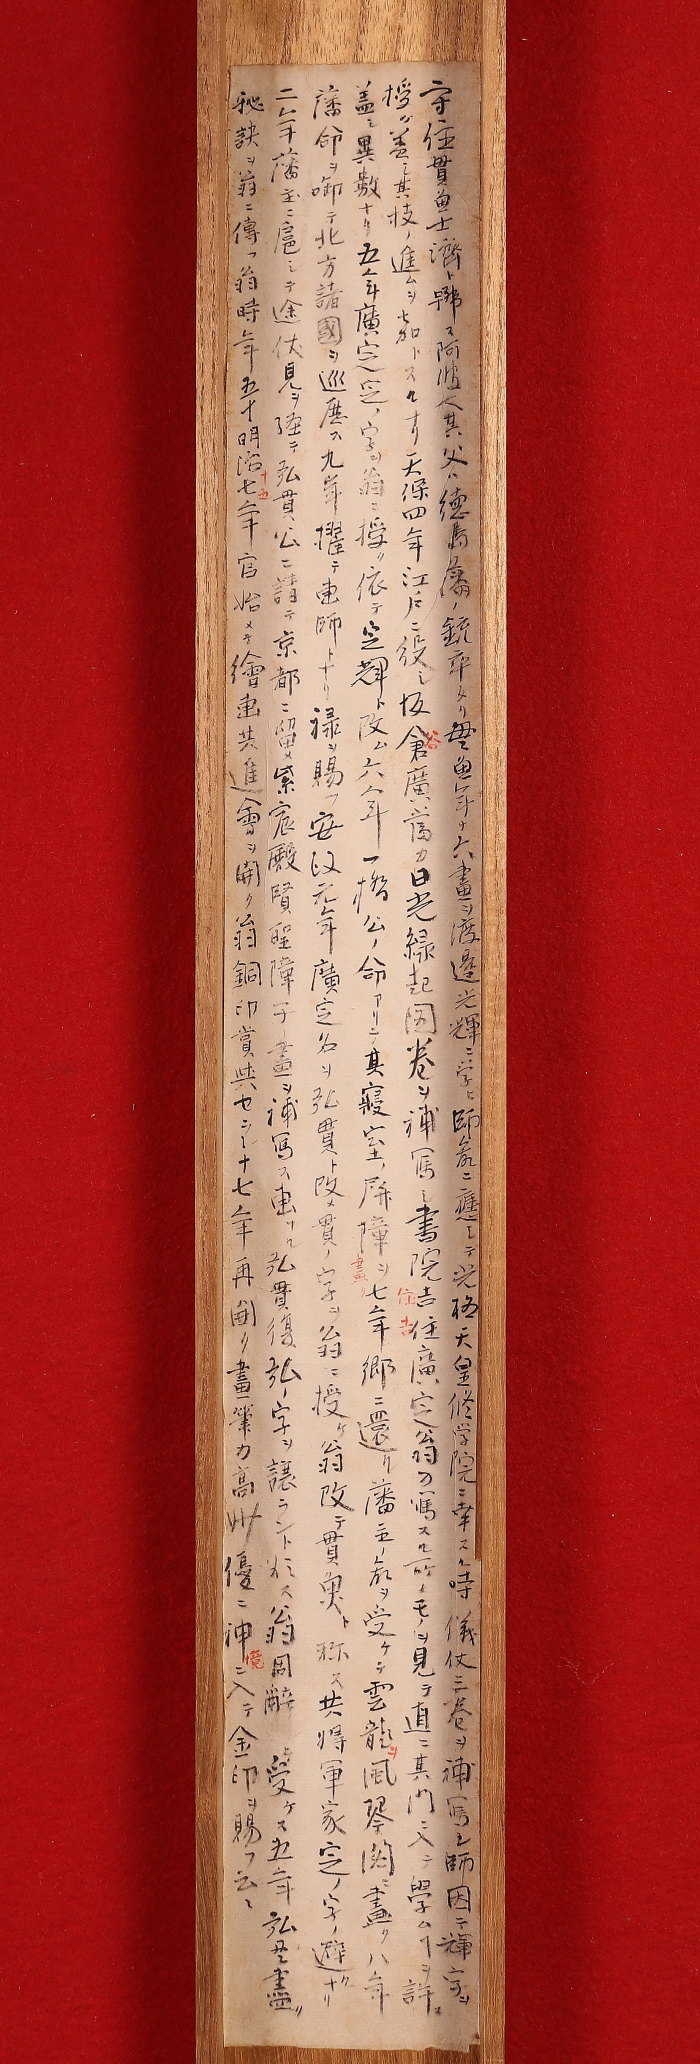 守住貫魚士済ト號ス阿波ノ人其父ハ徳島藩ノ銃卒タリ貫魚年十六畫ヲ渡邉光輝ニ学ヒ師命ニ應シテ光格天皇修学院ニ幸スル時ノ儀仗三巻ヲ補寫シ師因テ輝ノ字ヲ
授ク蓋シ其技ノ進ムヲ嘉トスルナリ天保四年江戸ニ役シ坂倉谷廣當カ日光緑起圖巻ヲ補寫シ書院吉住住吉廣定翁カ寫スル所ノモノヲ見テ直ニ其門ニ入テ學ムヿヲ許
蓋シ異数ナリ五年廣定定ノ字ヲ翁ニ授ク依テ定輝ト改ム六年一橋公ノ命アリテ其寢室ノ屏障ヲ畫ク七年郷ニ還リ藩主ノ命ヲ受ケテ雲龍ヲ風琴閣ニ畫ク八年
藩命ヲ啣テ北方諸國ヲ巡歴ス九年擢テ画師トナリ禄ヲ賜フ安政元年廣定名ヲ弘貫ト改メ貫ノ字ヲ翁ニ授ケ翁改テ貫魚ト称ス共将軍家定ノ字ノ避ケナリ
二年藩主ニ扈シテ途伏見ヲ経テ弘貫公ニ請テ京都ニ留メ紫宸殿賢聖障子ノ畫ヲ補寫ス画ナル弘貫復弘ノ字ヲ譲ラント欲ス翁固辭シ受ケス五年弘貫畫ノ
秘訣ヲ翁ニ傳フ翁時年五十明治十五七年官始メテ繪画共進會ヲ開ク翁銅印賞典セラレ十七年再開ク畫筆力高妙優ニ神境ニ入テ金印ヲ賜フ云々